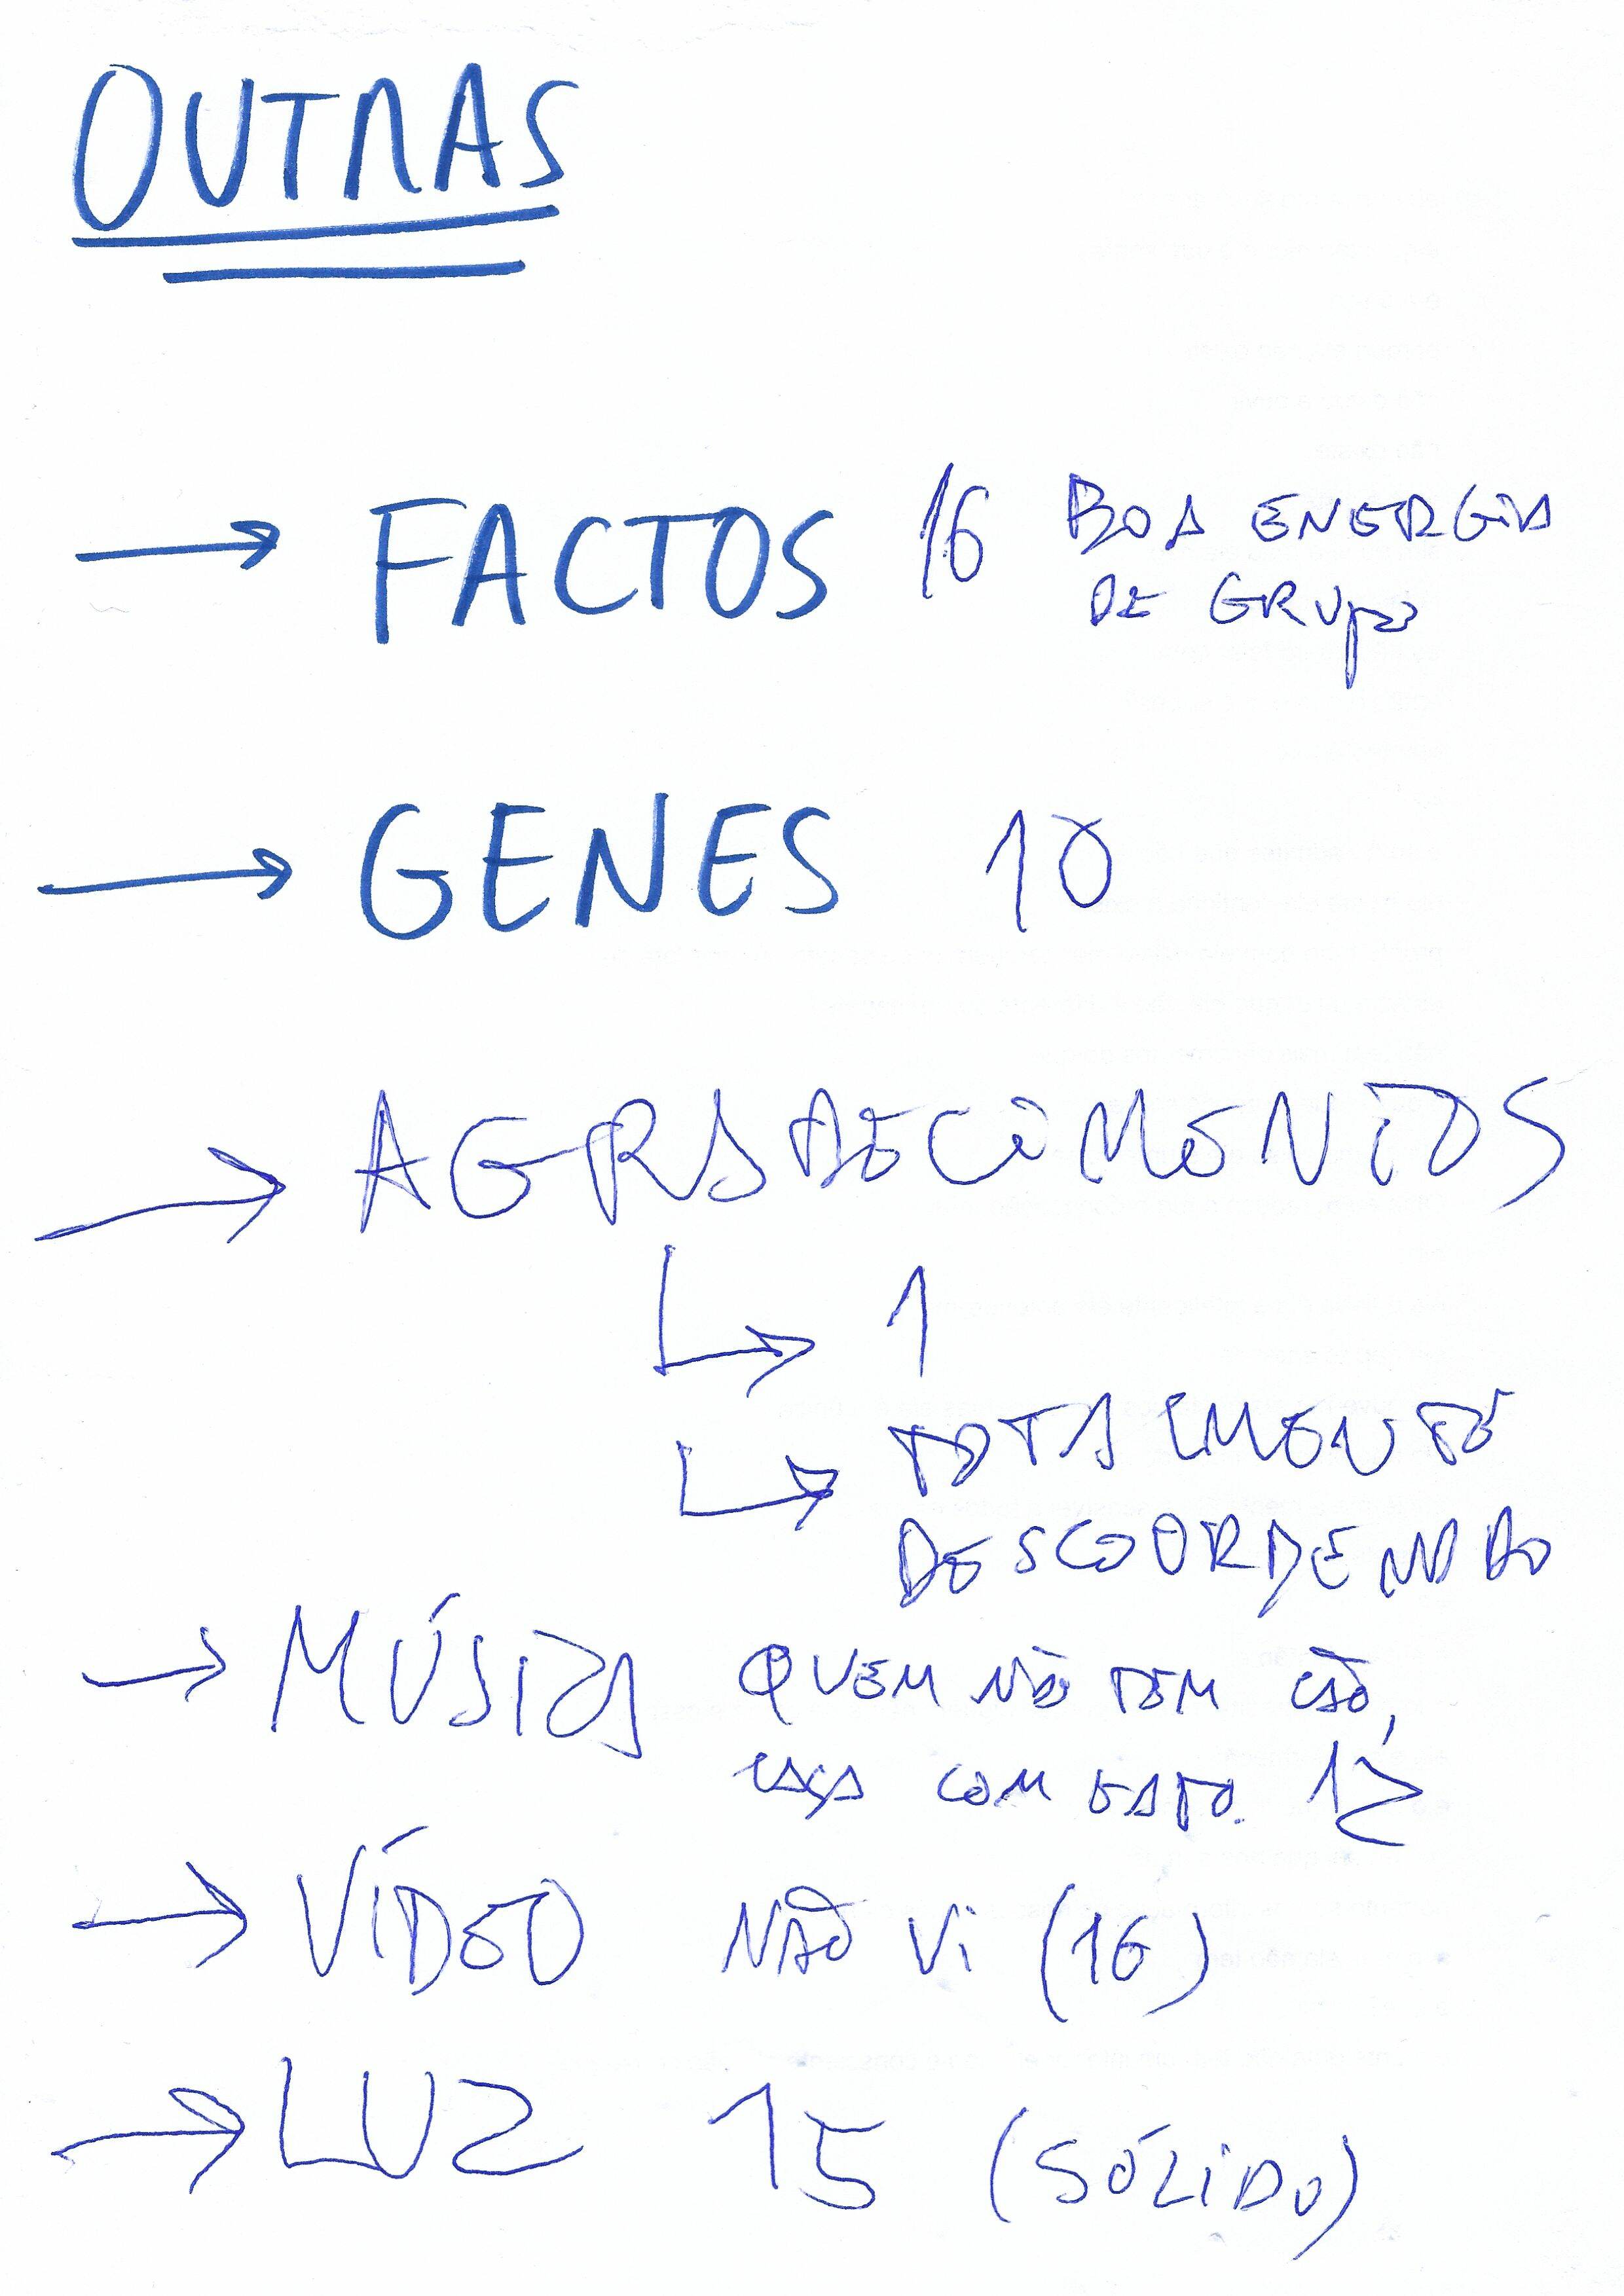 OUTRAS
→ FACTOS 16 BOA ENERGIA
DE GRUPO
→ GENES 10
→ AGRADECIMENTOS
↳ 1
↳ TOTALMENTE
DESCOORDENADO
→ MÚSICA QUEM NÃO TEM CÃO,
CAÇA COM GATO. 12
→ VÍDEO NÃO VI (16)
→ LUZ 15 (SÓLIDO)